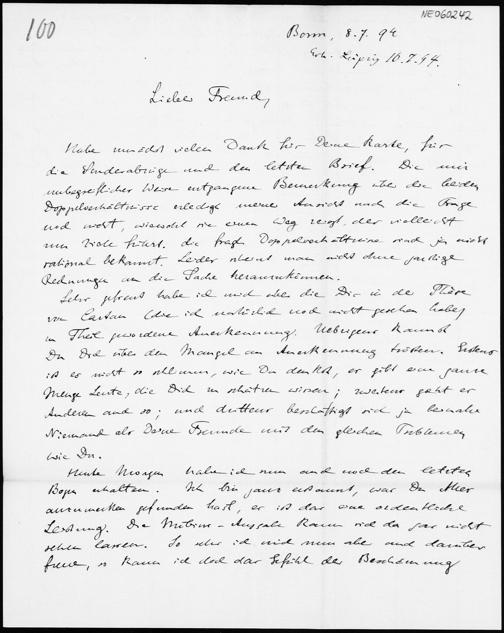 NE060242
100
Bonn, 8.7.94
Erh. Leipzig 10.7.94.
Lieber Freund,
Habe zunächst vielen Dank für Deine Karte, für
die Sonderabzüge und den letzten Brief. Die mir
unbegreiflicher Weise entgangene Bemerkung über die beiden
Doppelverhältnisse erledigt meiner Ansicht nach die Frage
noch nicht, wiewohl sie einen Weg zeigt, der vielleicht
zum Ziele führt. die Doppelverhältnisse sind ja nicht
rational bekannt. Leider scheint man nicht ohne garstige
Rechnungen an die Sache heranzukommen.
Sehr gefreut habe ich mich über die Dir in der Thèse
von Cartan (die ich natürlich noch nicht gesehen habe)
zu Theil gewordene Anerkennung. Uebrigens kannst
Du Dich über den Mangel an Anerkennung trösten. Erstens
ist es nicht so schlimm, wie Du denkst, es gibt eine ganze
Menge Leute, die Dich zu schätzen wissen; zweitens geht es
Anderen auch so; und drittens beschäftigt sich ja beinahe
Niemand als Deine Freunde mit den gleichen Problemen
wie Du.
Heute Morgen habe ich nun auch noch den letzten
Bogen erhalten. Ich bin ganz erstaunt, was Du Alles
auszumerken gefunden hast, es ist das eine ordentliche
Leistung. Die Möbius-Ausgabe kann sich da gar nicht
sehen lassen. So sehr ich mich nun aber auch darüber
freue, so kann ich doch das Gefühl der Beschämung